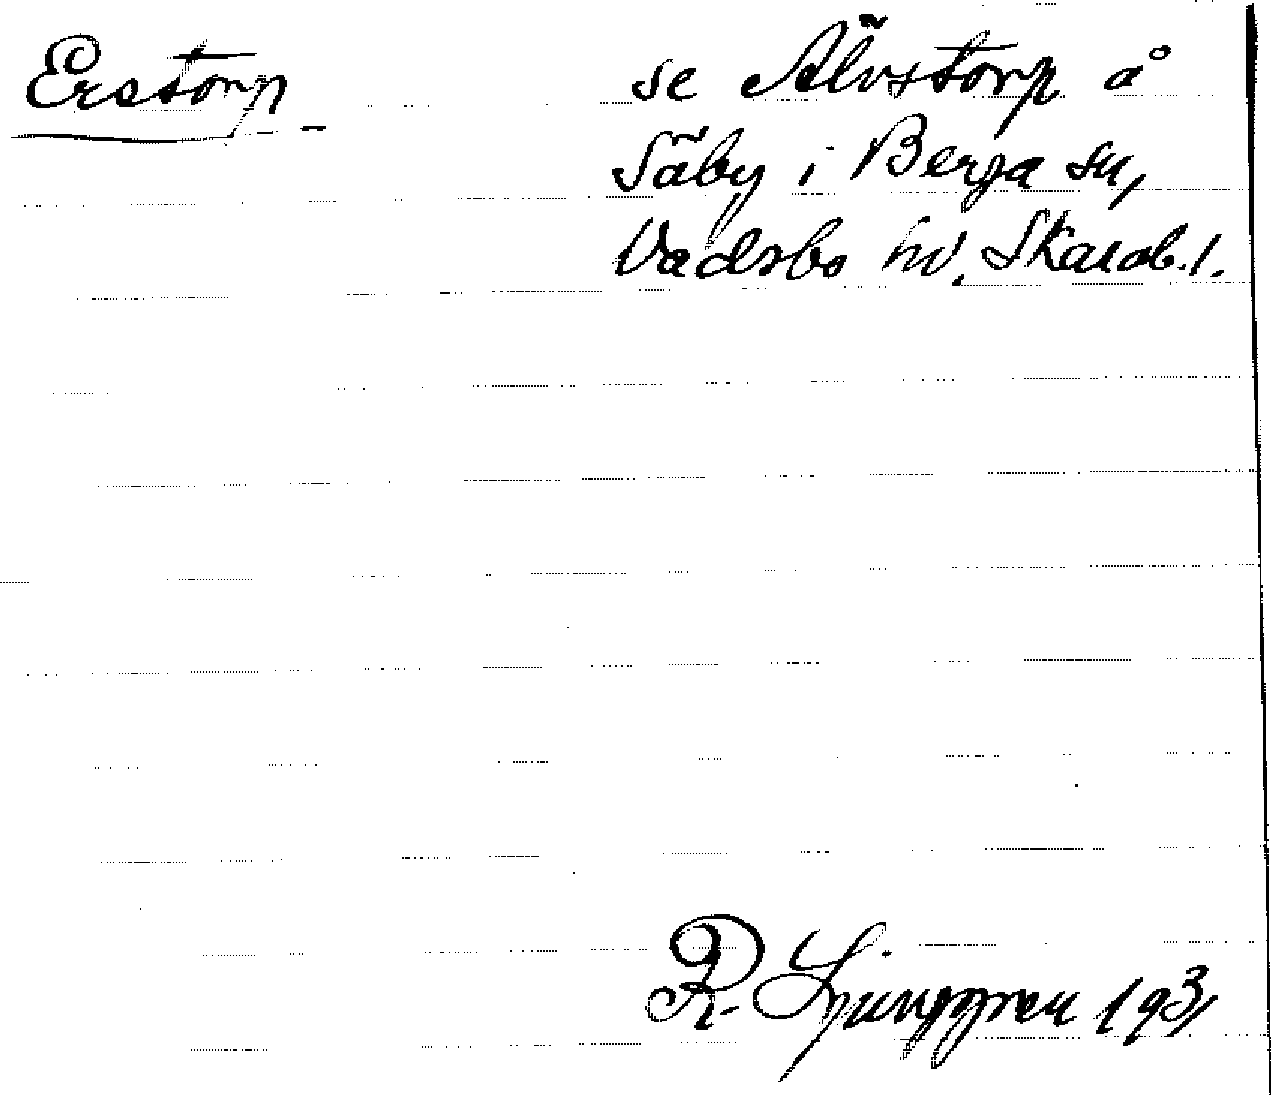 Erstorp
se Älvstorp å
Säby i Berga sn,
Vadsbo hd, Skarab. l.
R. Ljunggren 1931